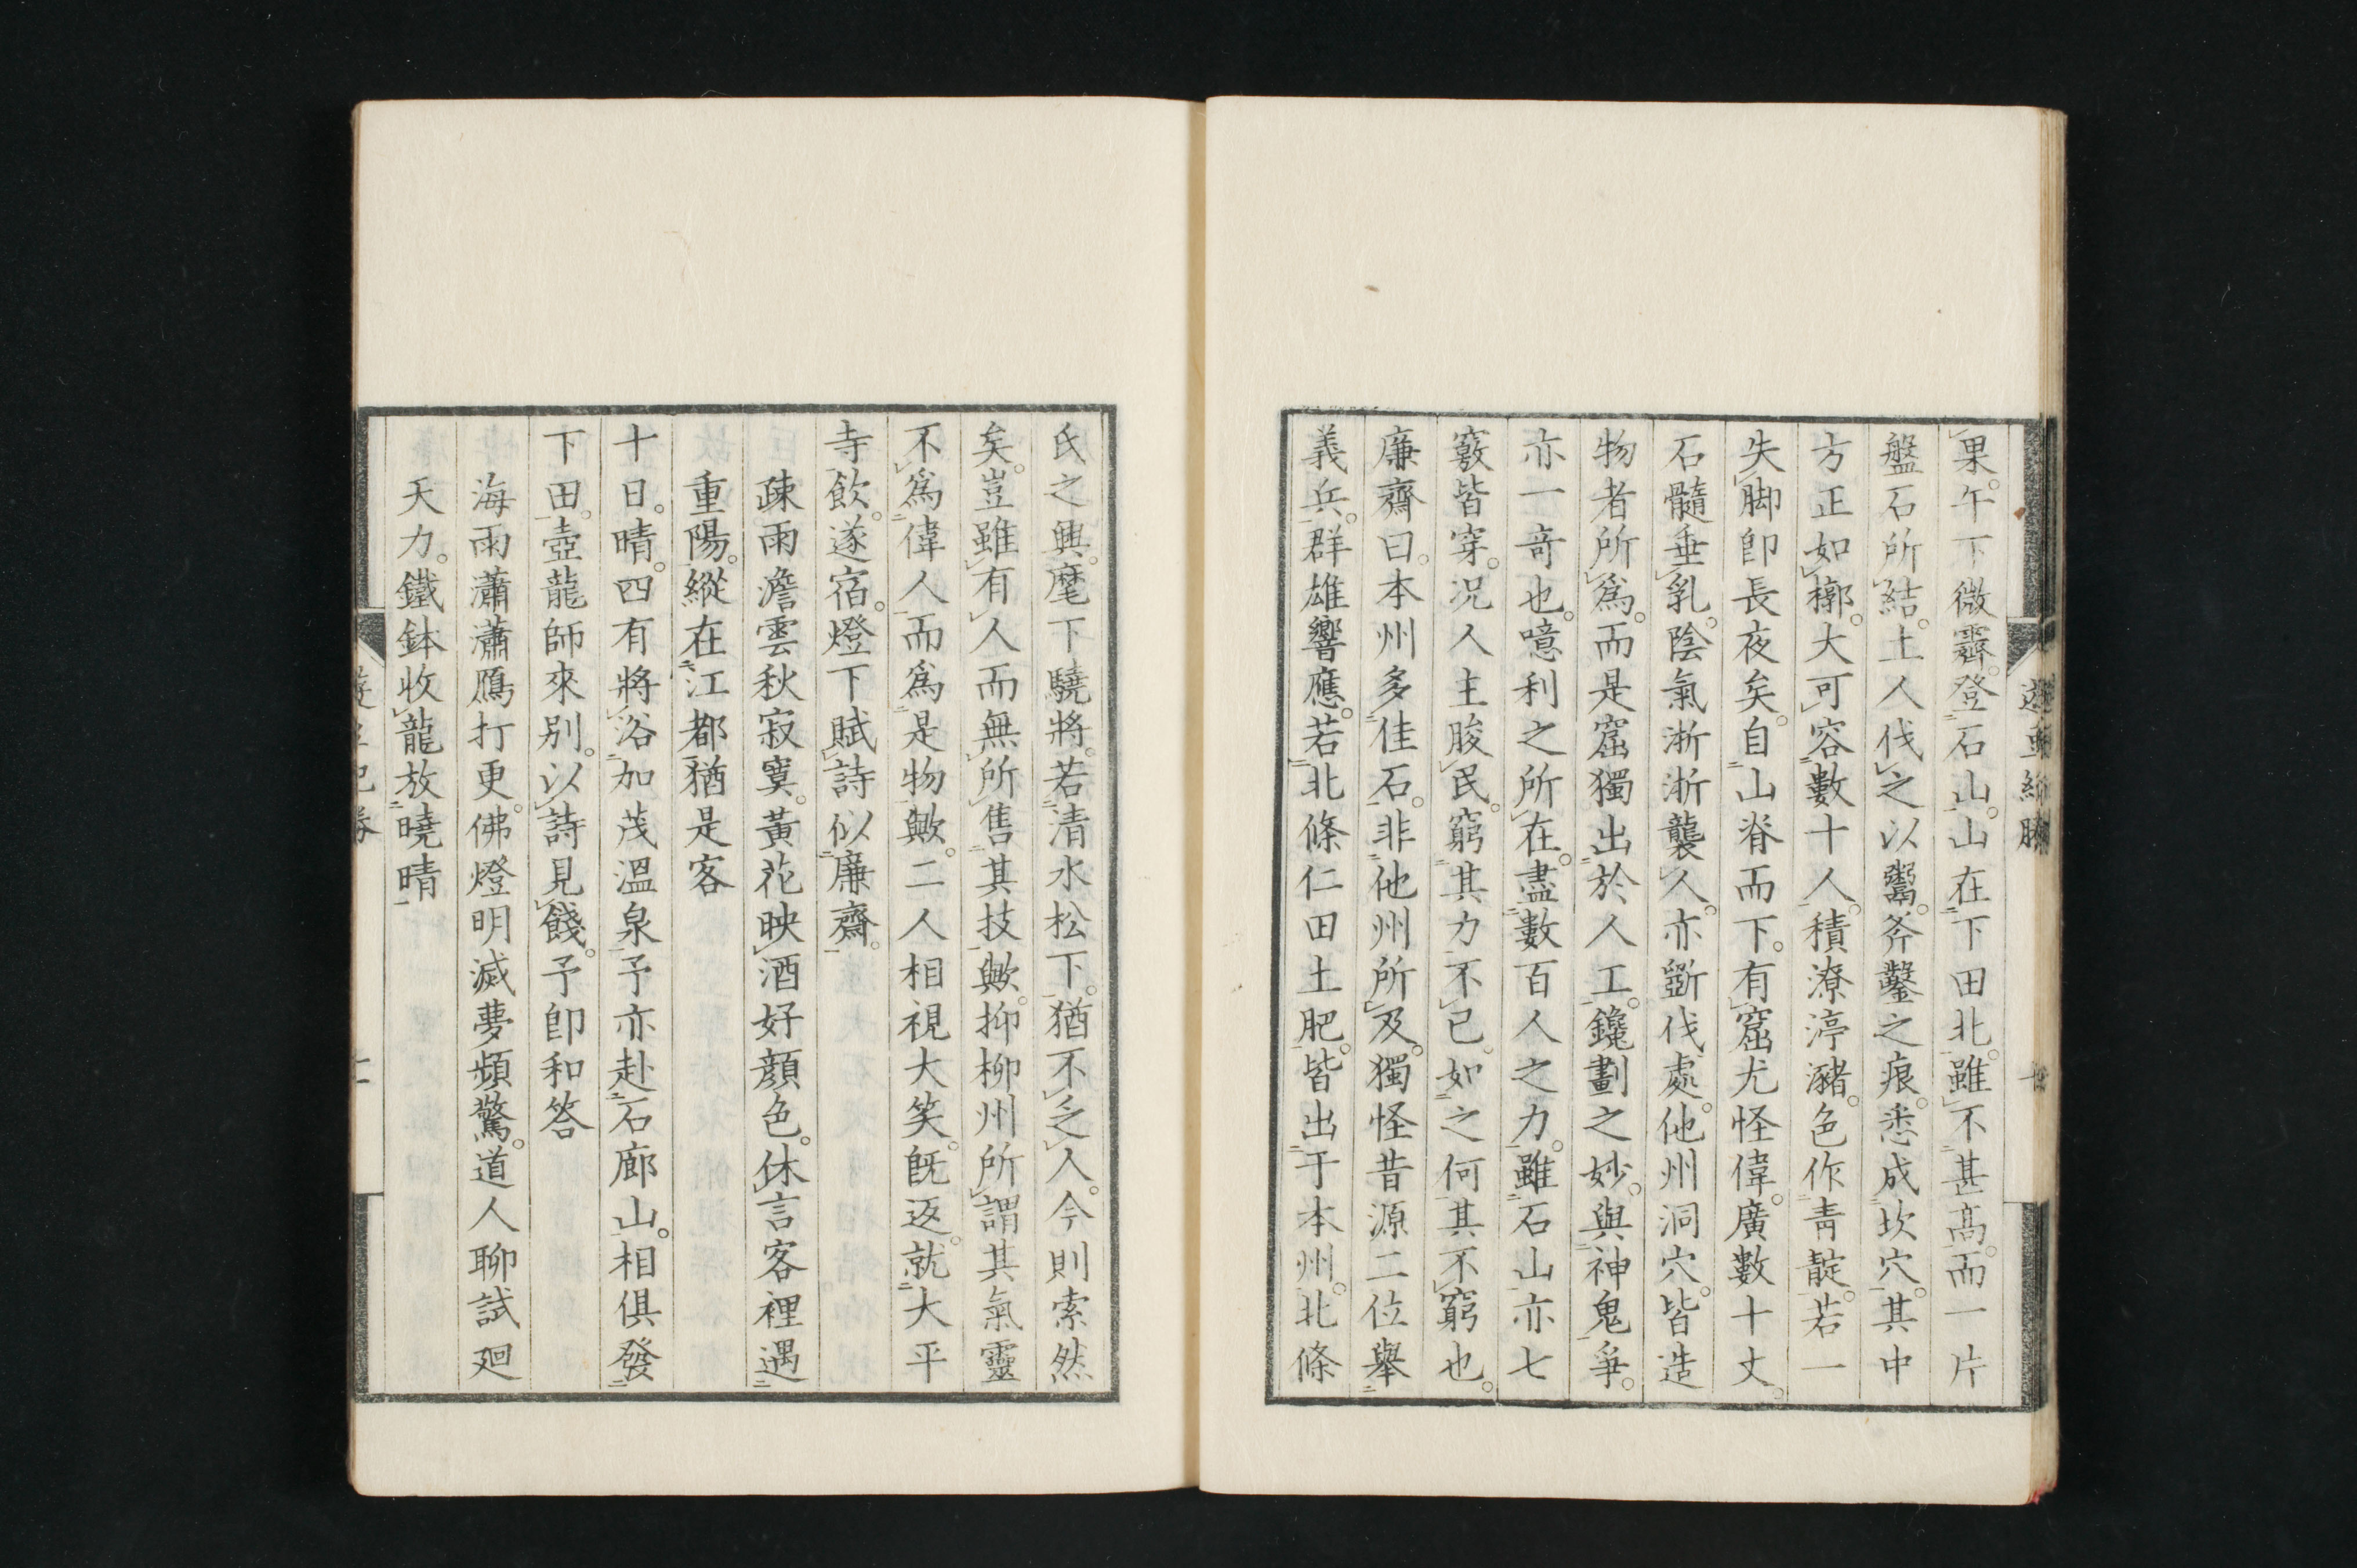 果。午下微霽。登石山。山在下田北。雖不甚高。而一片
盤石所結。土人伐之以鬻。斧鑿之痕。悉成坎穴。其中
方正如槨。大可容數十人。積潦渟瀦。色作靑靛。若一
失脚卽長夜矣。自山脊而下。有窟尤怪偉。廣數十丈。
石髓垂乳。陰氣淅淅襲人。亦斲伐處。他州洞穴。皆造
物者所爲。而是窟獨出於人工。鑱劃之妙。與神鬼爭。
亦一竒也。噫利之所在。盡數百人之力。雖石山亦七
竅皆穿。況人主朘民。窮其力不已。如之何其不窮也。
廉齋曰。本州多佳石。非他州所及。獨怪昔源二位舉
義兵。群雄響應。若北條仁田土肥。皆出于本州。北條
氏之興。麾下驍將。若清水松下。猶不乏人。今則索然
矣。豈雖有人而無所售其技歟。抑柳州所謂其氣靈
不爲偉人而爲是物歟。二人相視大笑。旣返。就大平
寺飮。遂宿。燈下賦詩似廉齋。
疎雨澹雲秋寂寞。黃花映酒好顔色。休言客裡遇
重陽。縱在江都猶是客
十日。晴。四有將浴加茂溫泉。予亦赴石廊山。相俱發
下田。壺龍師來別。以詩見餞。予卽和答
海雨瀟瀟鴈打更。佛燈明滅夢頻驚。道人聊試廻
天力。鐵鉢收龍放曉晴